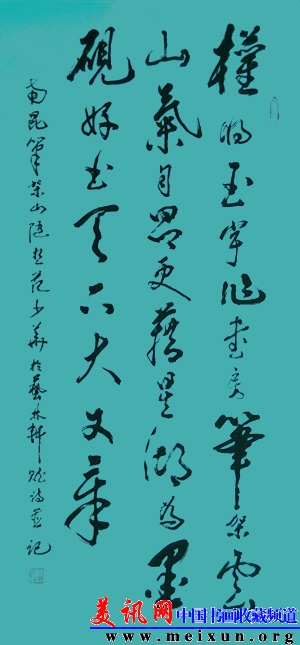 權將玉宇作書房筆架雲
山氣自昂更藉星湖為墨
硯好書天下大文章
南昆筆架山隨想范少華於藝林軒賦詩並記
美讯网 中国书画收藏频道
www.meixun.org